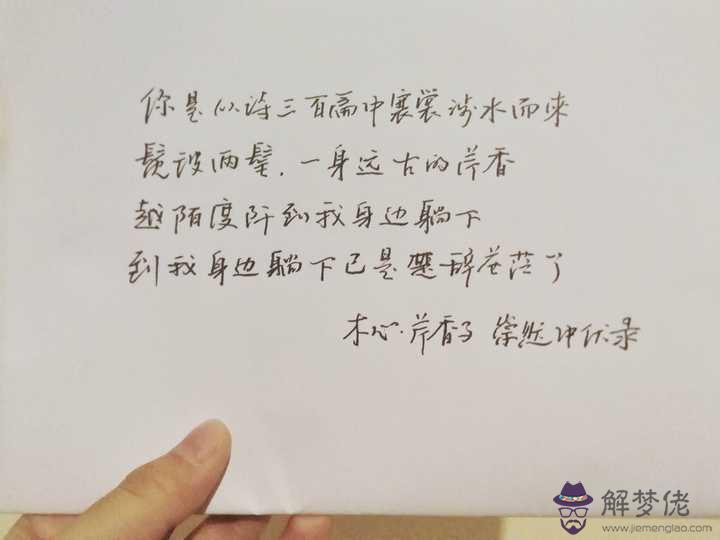 你是从诗三百篇中褰裳涉水而來
髧彼两髦，一身远古的芹香
越陌度阡到我身边躺下
到我身边躺下已是楚辞苍茫了
木心·芹香子 中伏录
解梦佬
www.jiemenglao.com